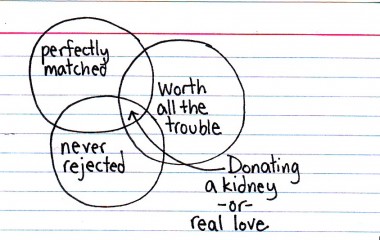 perfectly
matched
Worth
all the
trouble
never
rejected
Donating
a kidney
-or-
real love